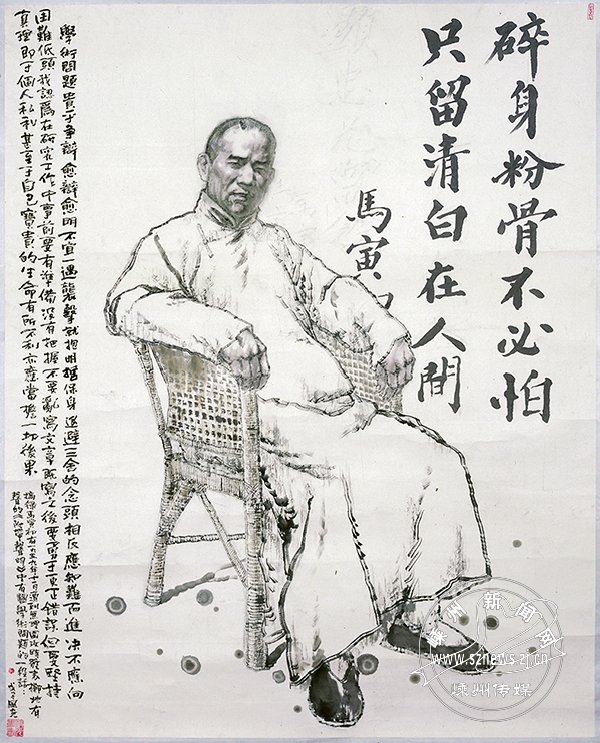 碎身粉骨不必怕
只留清白在人間
馬寅初
學術問題貴于爭辯愈辯愈明不宜一遇襲擊就抱明哲保身退避三舍的念頭相反應知難而進决不應向
困難低頭我認爲在研究工作中事前要有準備没有把握不要亂寫文章既寫之後要勇于更正錯誤但要堅持
真理即于個人私利甚至于自己寶貴的生命有所不利亦應當擔一切後果
嵊州新闻网
www.sznews.zj.cn
嵊州传媒